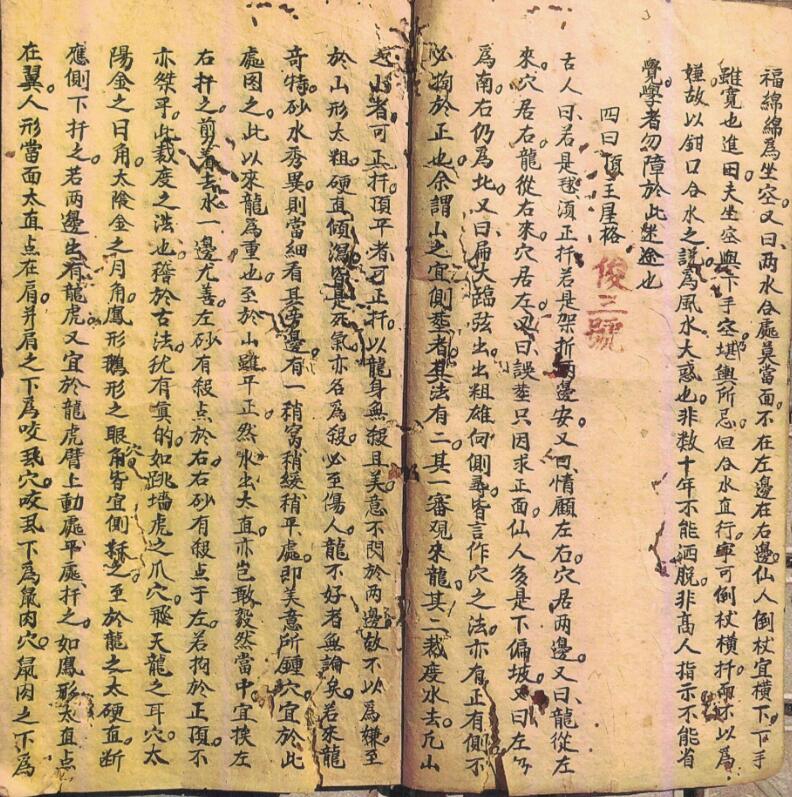 福綿綿為坐空又曰两水合處莫當面不在左邊在右邊仙人倒杖宜橫下下手
雖寬也進田夫坐空與下手空堪輿所忌但合水直行寧可倒杖橫扦而不以為
嫌故以鉗口合水之説為風水大惑也非数十年不能洒脱非高人指示不能省
覺學者勿障於此迷途也
四曰頂王屋格
俊三號
古人曰若是毬須正扦若是架折两邊安又曰情顧左右穴居两邊又曰龍從左
來穴居右龍從右來穴居左又曰誤塟只因求正面仙人多是下偏坡又曰左
為南右仍為北又曰扁大臨弦出出粗雄向側尋皆言作穴之法亦有正有側不
必拘於正也余謂山之宜側塟者其法有二其一審覌來龍其二裁度水去凢山
之山者可正扦頂平者可正扦以龍身無殺且美意不閃於两邊故不以為嫌至
於山形太粗硬直傾瀉皆是死氣亦名為殺必至傷人龍不好者無論矣若來龍
竒特砂水秀異則當細看其两邊有一稍窩稍緩稍平處即美意所鍾穴宜於此
處因之此以來龍為重也至於山雖平正然水出太直亦岂敢毅然當中宜挨左
右扦之剪着去水一邊尤善左砂有殺点於右右砂有殺点于左若拘於正頂不
亦桀乎此裁度之法也稽於古法犹有真的如跳墙虎之爪穴飛天龍之耳穴太
陽金之日角太陰金之月角鳳形鵝形之眼角皆宜側穴之至於龍之太硬直断
應側下扦之若两邊出有龍虎又宜於龍虎臂上動處平處扦之如鳳形太直点
在翼人形當面太直点在肩并肩之下為咬虱穴咬虱下為鼠肉穴鼠肉之下為